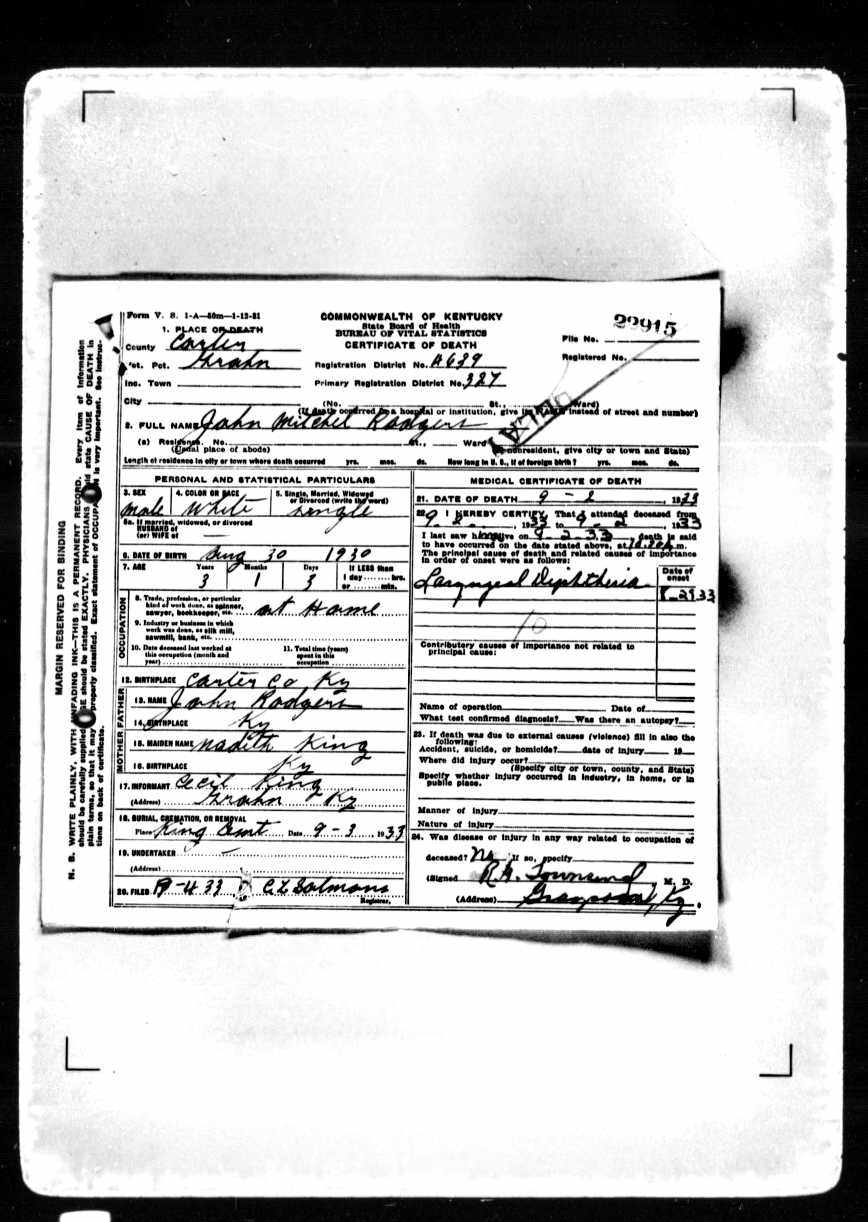 Form V. S. 1-A—50m—1-12-31
COMMONWEALTH OF KENTUCKY
State Board of Health
BUREAU OF VITAL STATISTICS
CERTIFICATE OF DEATH
File No. 22915
Registered No.
1. PLACE OF DEATH
County Carter
Vot. Pct. Grahn
Inc. Town
City
Registration District No. A639
Primary Registration District No. 327
(No. St., Ward)
(If death occurred in a hospital or institution, give its NAME instead of street and number)
2. FULL NAME John Mitchel Rodgers
(a) Residence. No. St., Ward
(Usual place of abode) (If nonresident, give city or town and State)
Length of residence in city or town where death occurred yrs. mos. ds. How long in U. S., if of foreign birth? yrs. mos. ds.
PERSONAL AND STATISTICAL PARTICULARS
3. SEX
male
4. COLOR OR RACE
White
5. Single, Married, Widowed
or Divorced (write the word)
single
5a. If married, widowed, or divorced
HUSBAND of
(or) WIFE of —
6. DATE OF BIRTH Aug 30 1930
7. AGE Years Months Days If LESS than
1 day hrs.
or min.
3 1 3
OCCUPATION
8. Trade, profession, or particular
kind of work done, as spinner,
sawyer, bookkeeper, etc. at Home
9. Industry or business in which
work was done, as silk mill,
sawmill, bank, etc.
10. Date deceased last worked at
this occupation (month and
year)
11. Total time (years)
spent in this
occupation
12. BIRTHPLACE Carter Co Ky
FATHER
13. NAME John Rodgers
14. BIRTHPLACE Ky
MOTHER
15. MAIDEN NAME Nadith King
16. BIRTHPLACE Ky
17. INFORMANT Cecil King
(Address) Grahn Ky
18. BURIAL, CREMATION, OR REMOVAL
Place King Cemt Date 9-3 1933
19. UNDERTAKER —
(Address)
20. FILED 33 C L Salmons
Registrar.
MEDICAL CERTIFICATE OF DEATH
21. DATE OF DEATH 9 - 2 1933
22. I HEREBY CERTIFY, That I attended deceased from
9 2, 1933 to 9-2, 1933
I last saw him alive on 9-2-33, death is said
to have occurred on the date stated above, at m.
The principal cause of death and related causes of importance
in order of onset were as follows:
Date of
onset
Laryngeal Diphtheria
10
Contributory causes of importance not related to
principal cause:
Name of operation Date of
What test confirmed diagnosis? Was there an autopsy?
23. If death was due to external causes (violence) fill in also the
following:
Accident, suicide, or homicide? date of injury 19
Where did injury occur?
(Specify city or town, county, and State)
Specify whether injury occurred in industry, in home, or in
public place.
Manner of injury
Nature of injury
24. Was disease or injury in any way related to occupation of
deceased? No If so, specify
(Signed R. H. Townsend, M. D.
(Address) Grayson, Ky.
MARGIN RESERVED FOR BINDING
N. B. WRITE PLAINLY, WITH UNFADING INK—THIS IS A PERMANENT RECORD. Every item of information
should be carefully supplied. AGE should be stated EXACTLY. PHYSICIANS should state CAUSE OF DEATH in
plain terms, so that it may be properly classified. Exact statement of OCCUPATION is very important. See instruc-
tions on back of certificate.